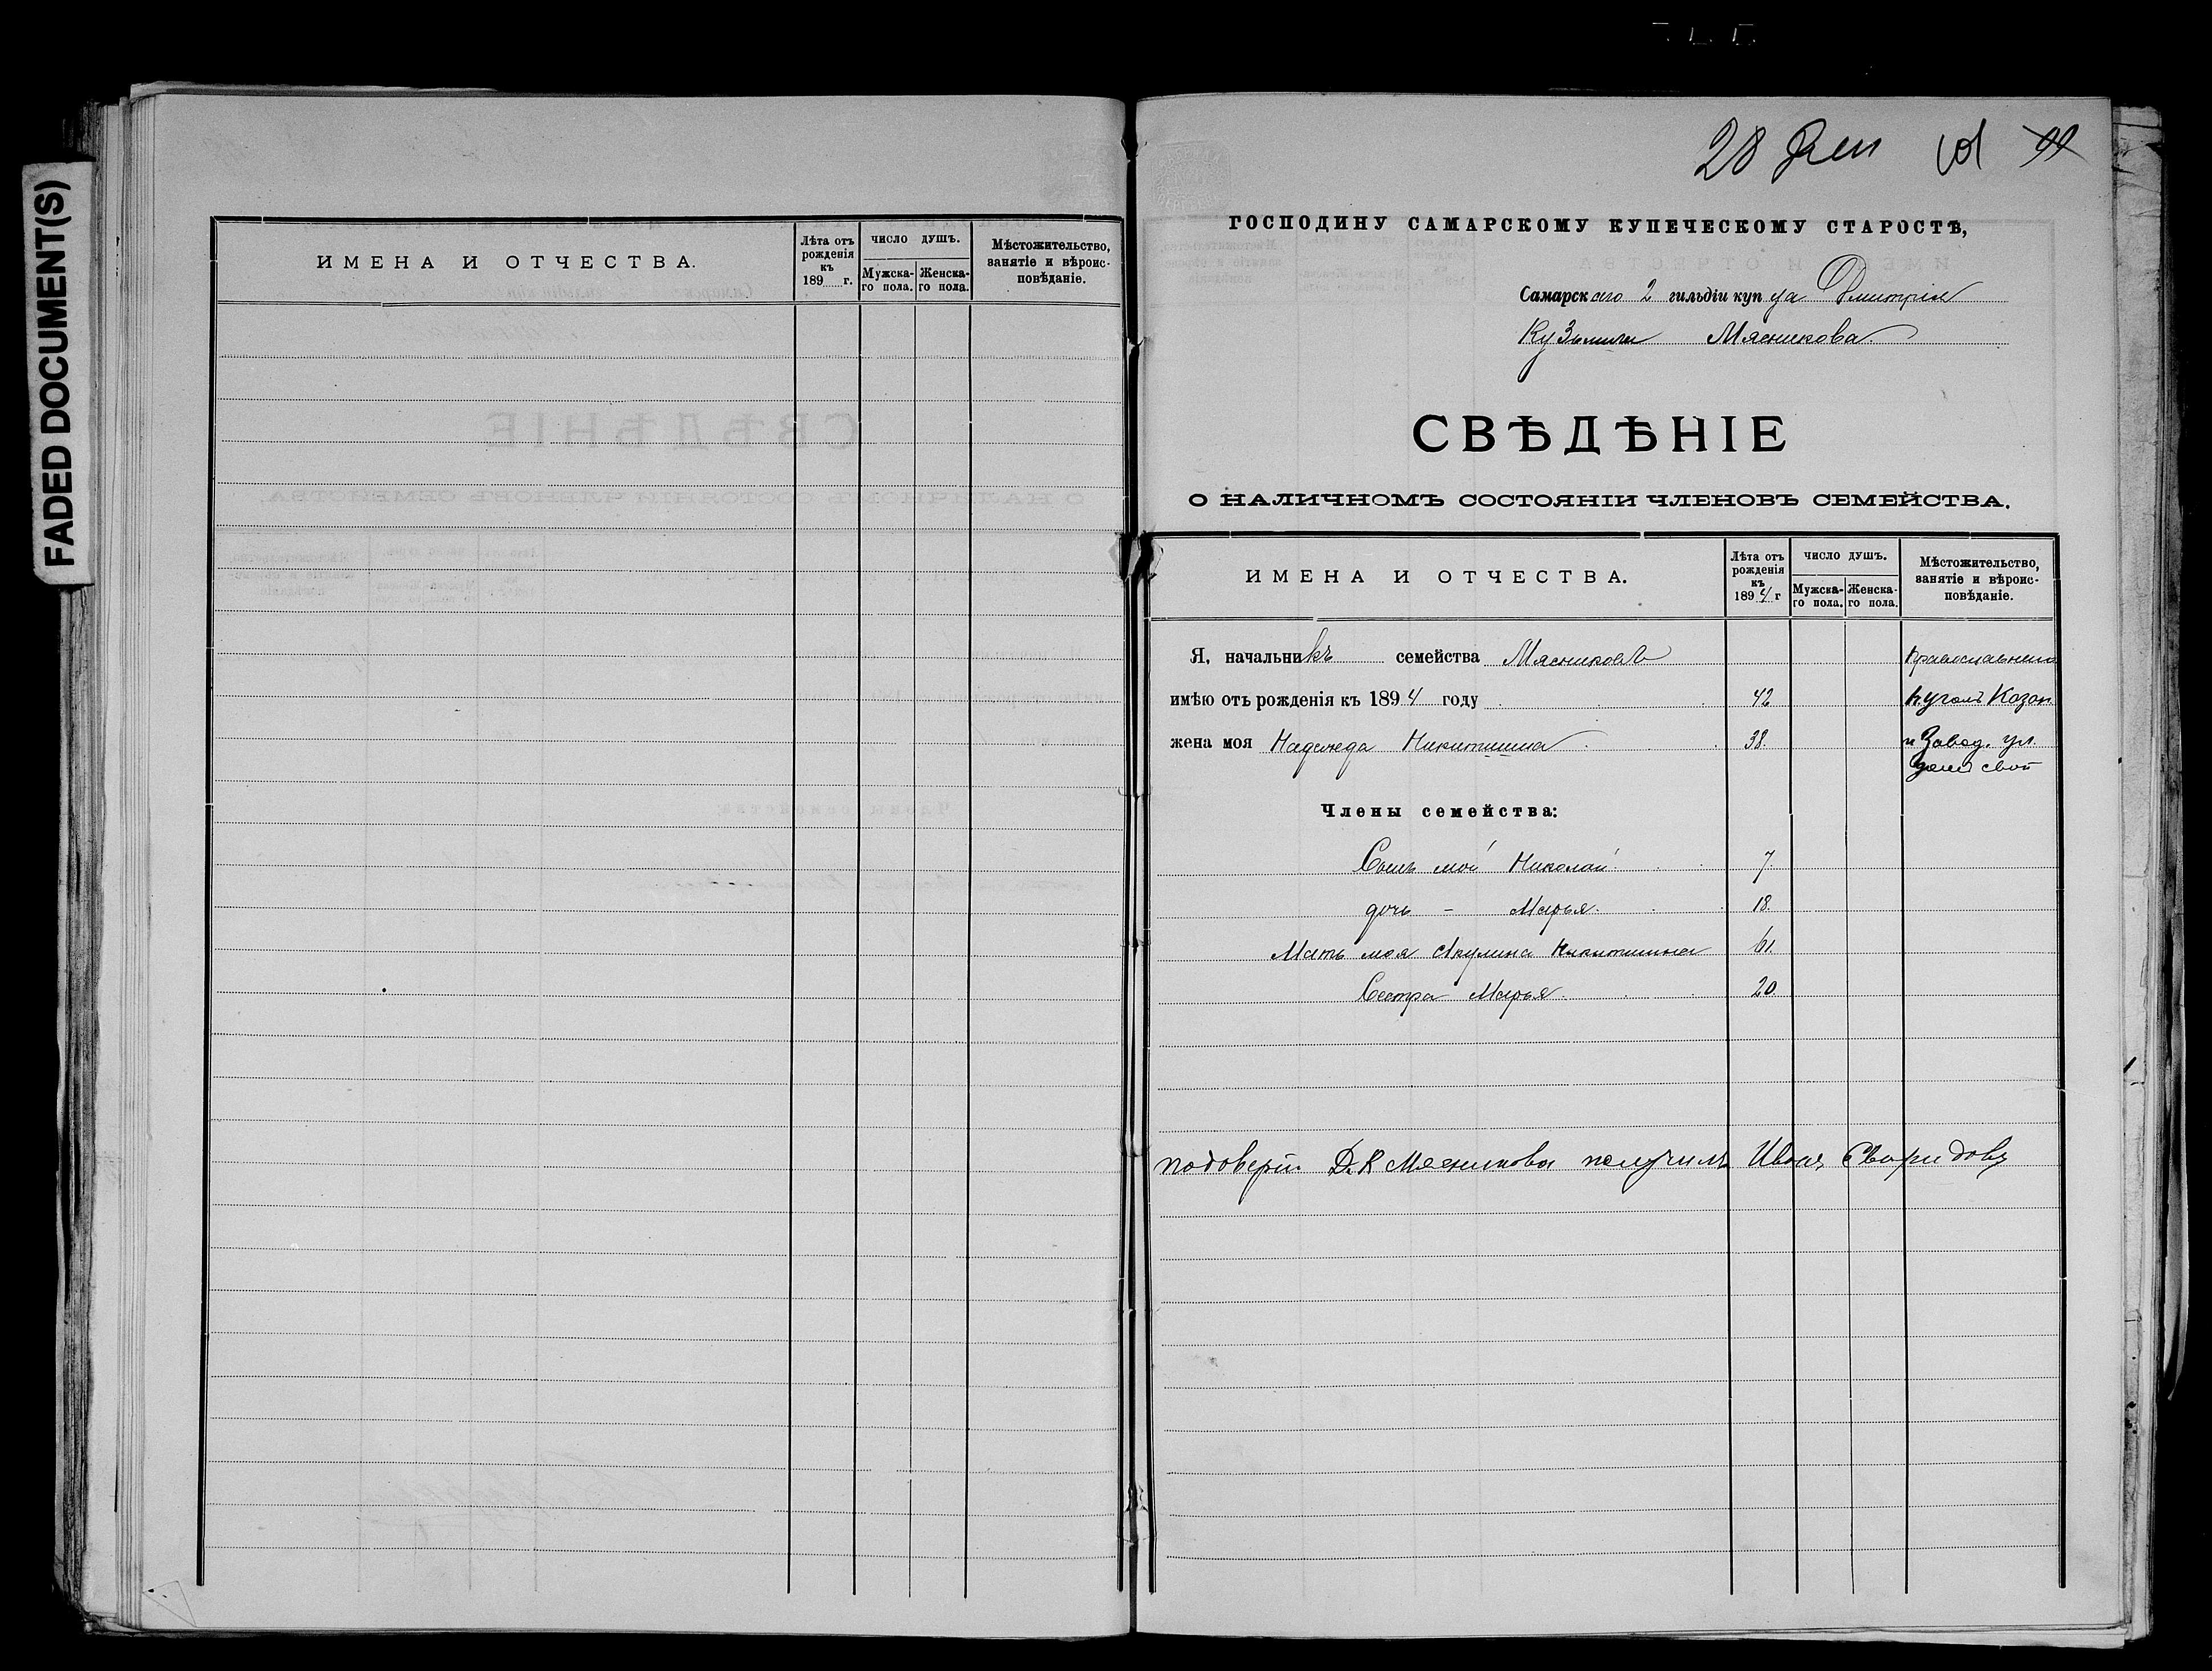 FADED DOCUMENT(S)
ИМЕНА И ОТЧЕСТВА.
Лѣта отъ рожденія къ 189 г.
ЧИСЛО ДУШЪ.
Мужска-го пола.
Женска-го пола.
Мѣстожительство, занятіе и вѣроис-повѣданіе.
28 Ден 101 99
ГОСПОДИНУ САМАРСКОМУ КУПЕЧЕСКОМУ СТАРОСТѢ,
Самарскаго 2 гильдіи купца Дмитрія
Кузьмича Мясникова
СВѢДѢНІЕ
О НАЛИЧНОМЪ СОСТОЯНІИ ЧЛЕНОВЪ СЕМЕЙСТВА.
ИМЕНА И ОТЧЕСТВА.
Лѣта отъ рожденія къ 1894 г
ЧИСЛО ДУШЪ.
Мужска-го пола.
Женска-го пола.
Мѣстожительство, занятіе и вѣроис-повѣданіе.
Я, начальникъ семейства Мясниковъ Православнаго
имѣю отъ рожденія къ 1894 году 42 уголъ Казан.
жена моя Надежда Никитишна 38. и Завод. ул.
домъ свой
Члены семейства:
Сынъ мой Николай 7.
дочь - Марья. 18.
Мать моя Акулина Никитишна 61.
Сестра Марья. 20.
подоверiи Д.К Мясникова получилъ Иванъ Свиридовъ